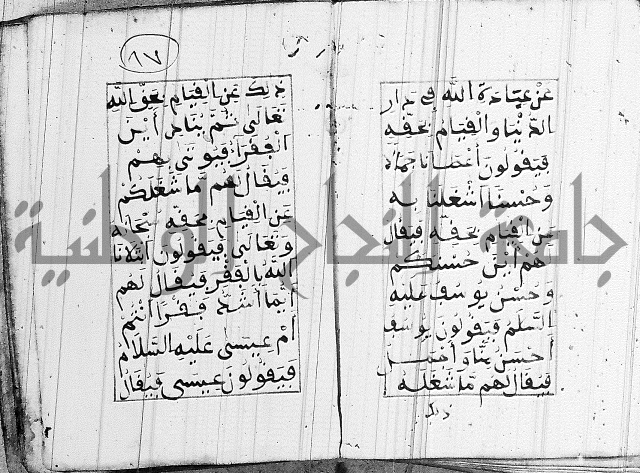 عن عبادة الله في دار
الدنيا والقيام بحقه
فيقولون أعطانا جمالا
وحسنا اشغلنا به
عن القيام بحقه فيقال
لهم اين حسنكم
وحسن يوسف عليه
السلم فيقولون يوسف
أحسن منا وأجمل
فيقال لهم ما شغله
ذلك
٦٧
ذلك عن القيام بحق الله
تعالى ثم ينادى أين
الفقرآء فيوتى بهم
فيقال لهم ما شغلكم
عن القيام بحقه سبحانه
وتعالى فيقولون ابتلانا
الله بالفقر فيقال لهم
أيما أشد فقرا أنتم
أم عيسى عليه السلام
فيقولون عيسى فيقال
جامعة النجاح الوطنية